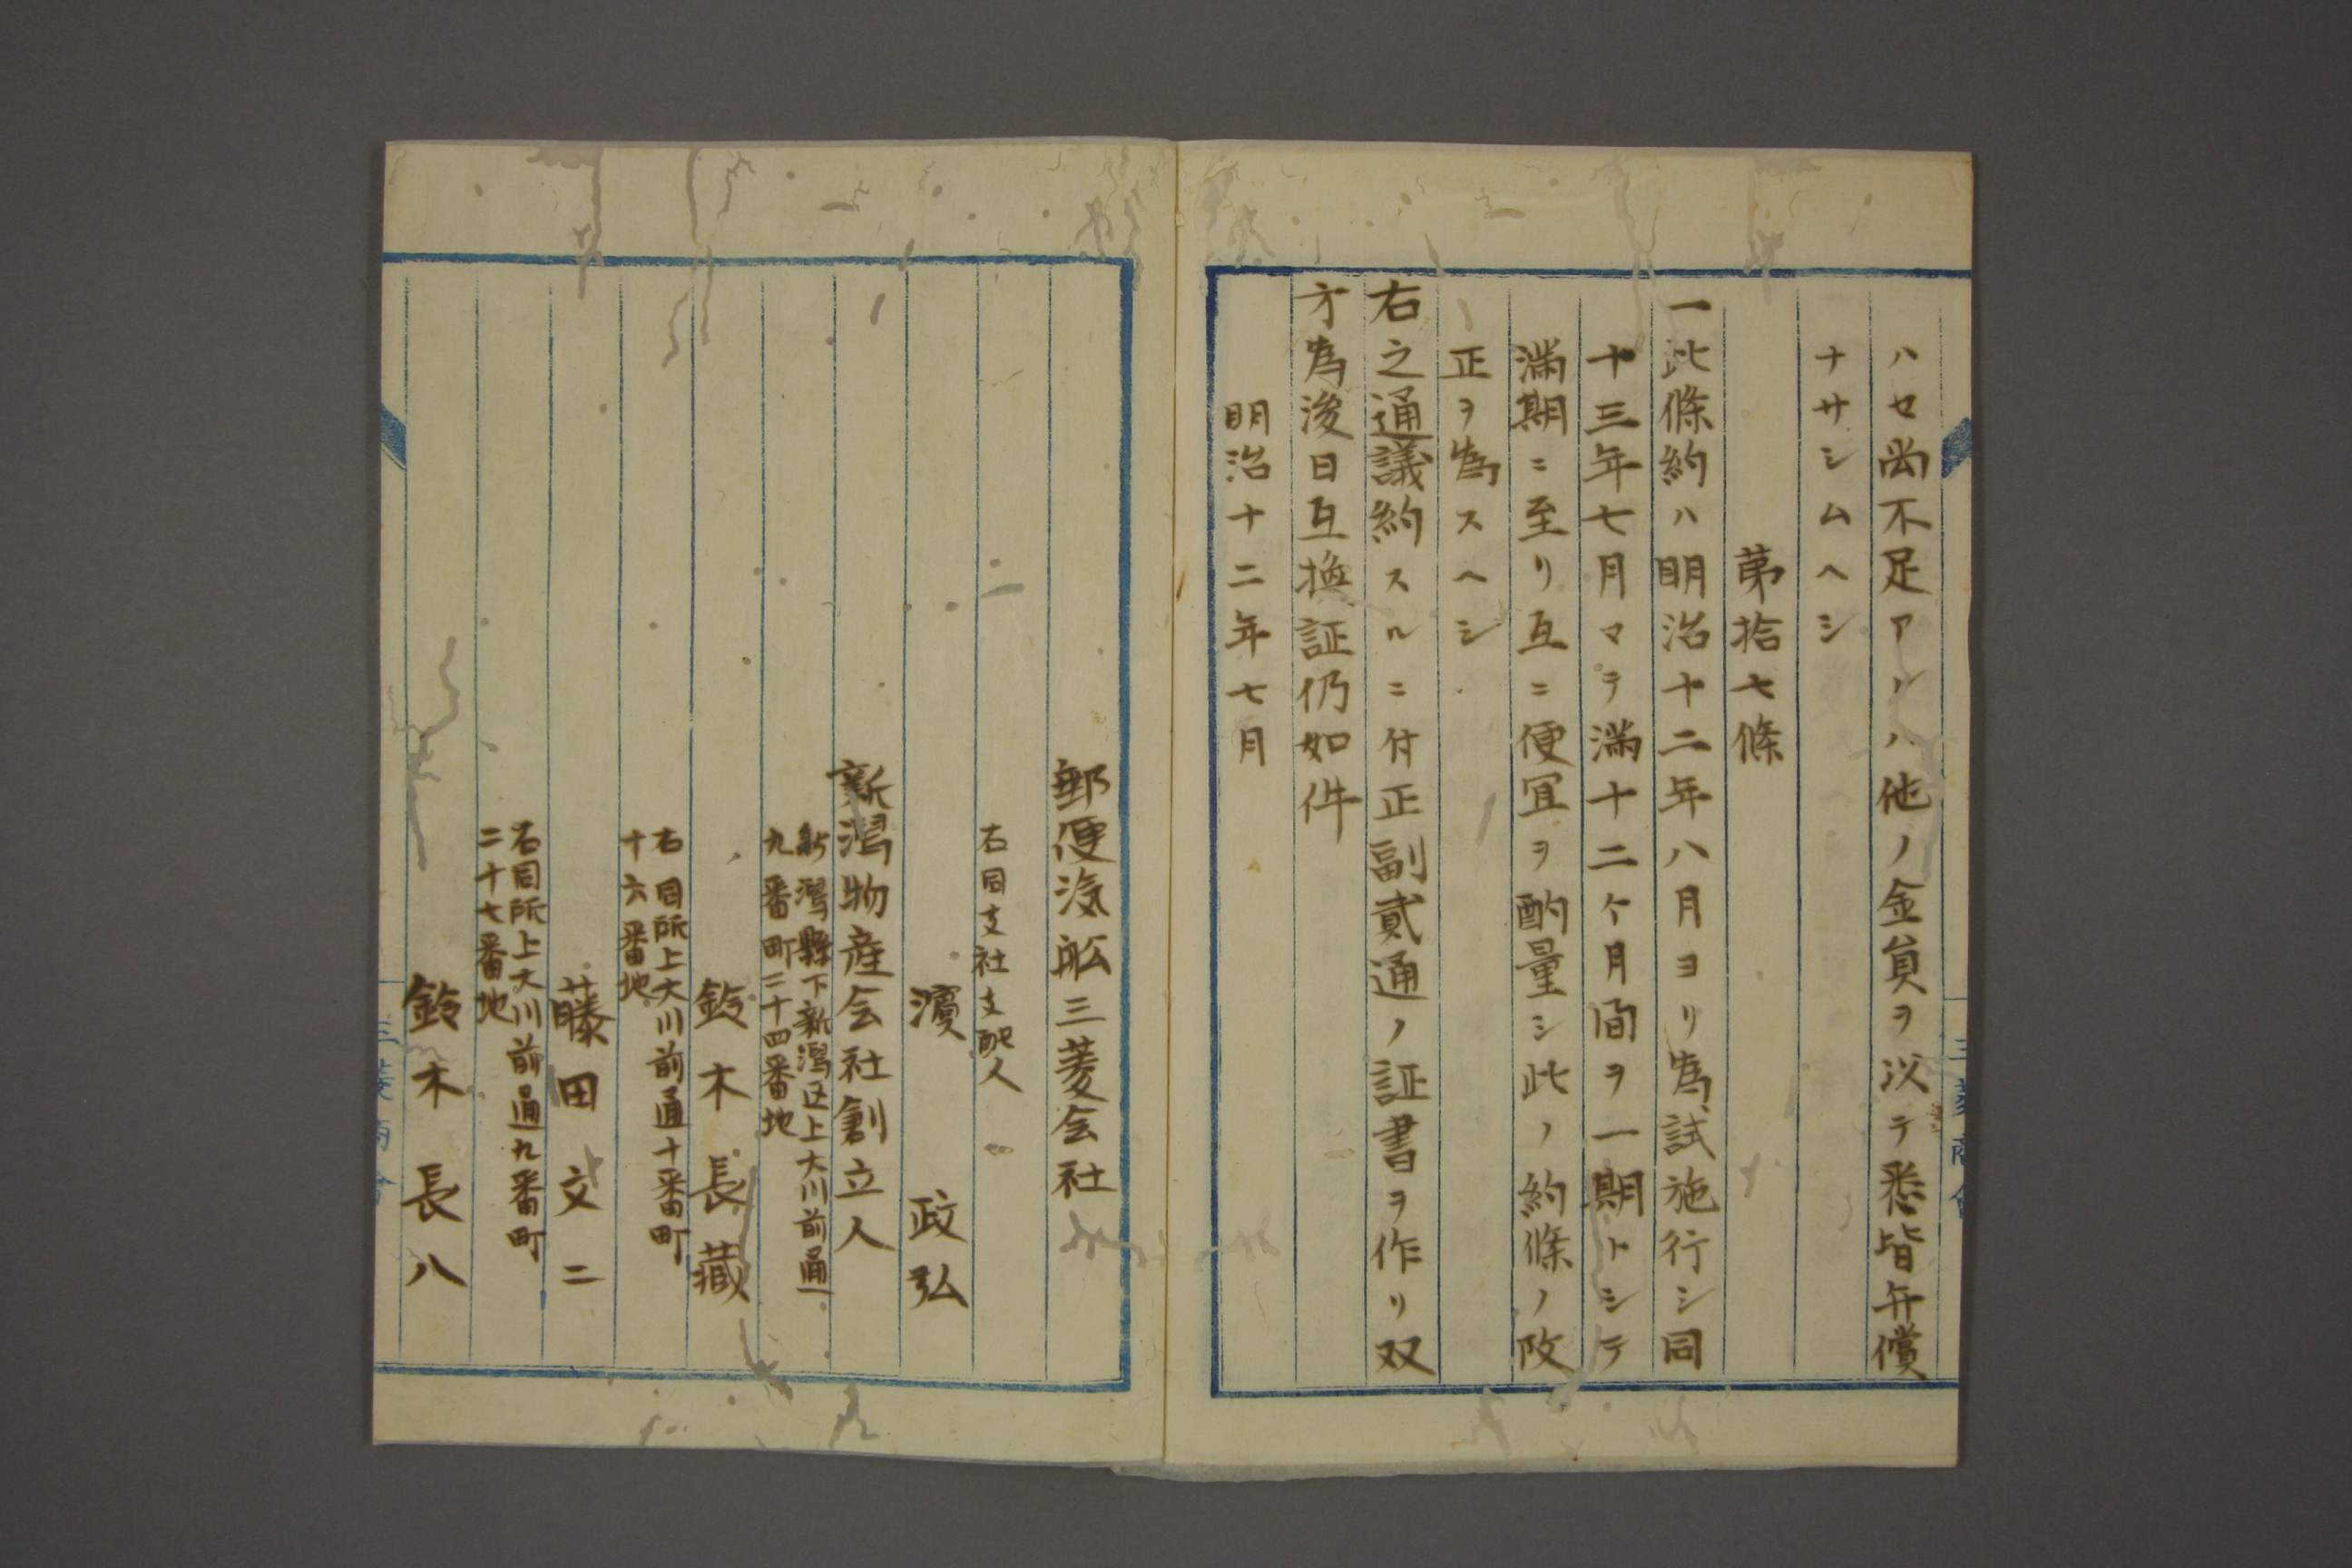 ハセ尚不足アレハ他ノ金員ヲ以テ悉皆弁償
ナサシムヘシ
第拾七條
一此條約ハ明治十二年八月ヨリ為試施行シ同
十三年七月マテ満十二ケ月間ヲ一期トシテ
満期ニ至リ互ニ便宜ヲ酌量シ此ノ約條ノ改
正ヲ為スヘシ
右之通議約スルニ付正副貳通ノ証書ヲ作リ双
方為後日互換証仍如件
明治十二年七月
郵便汽舩三菱会社
右同支社支配人
濵政弘
新潟物産会社創立人
新潟縣下新潟区上大川前通
九番町二十四番地
鈴木長蔵
右同所上大川前通十番町
十六番地
藤田文二
右同所上大川前通九番町
二十七番地
鈴木長八
三菱商會